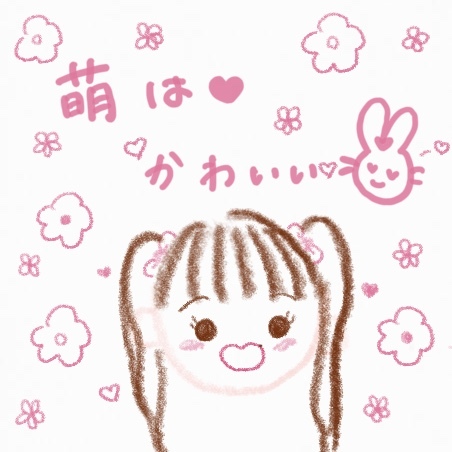 萌は♥
かわいい♡